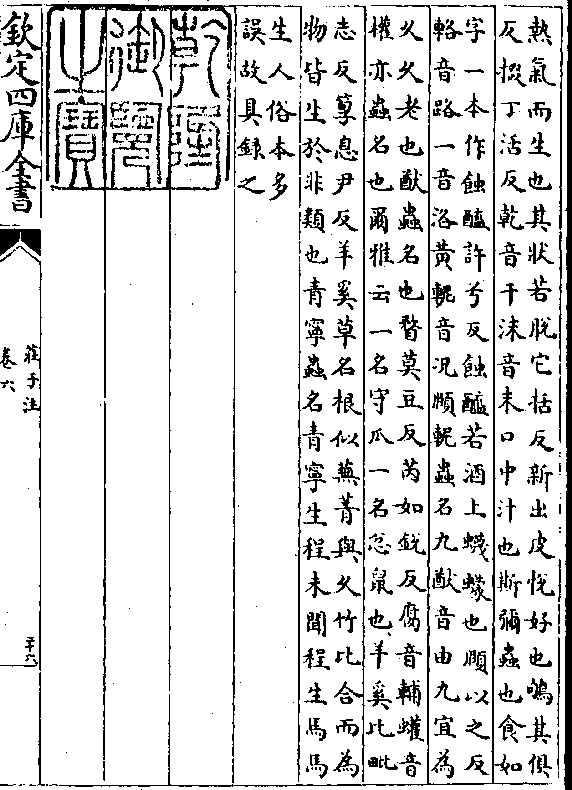 熱氣而生也其狀若脱它括反新出皮恱好也鴝其俱
反掇丁活反乾音干沫音末口中汁也斯彌蟲也食如
字一本作蝕醯許兮反蝕醯若酒上蠛蠓也頤以之反
輅音路一音洛黄軦音况頤軦蟲名九猷音由九宜為
久久老也猷蟲名也瞀莫豆反芮如銳反腐音輔蠸音
權亦蟲名也爾雅云一名守瓜一名忿鼠也羊奚比毗
志反䇹息尹反羊奚草名根似蕪菁與久竹比合而為
物皆生於非類也青寧蟲名青寧生程未聞程生馬馬
生人俗本多
誤故具録之
乾隆
御覽
之寶
欽定四庫全書
莊子注
卷六
二十六